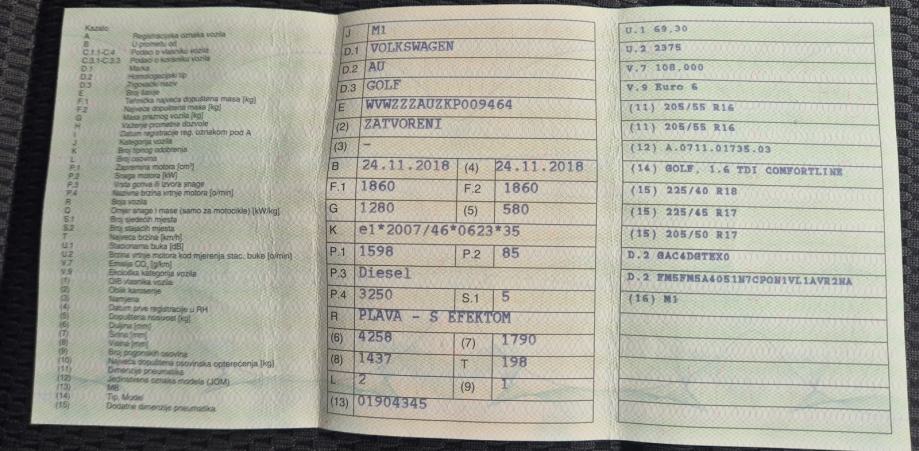 Kazalo
A Registracijska oznaka vozila
B U prometu od
C.1.1-C.4 Podaci o vlasniku vozila
C.3.1-C.3.3 Podaci o korisniku vozila
D.1 Marka
D.2 Homologacijski tip
D.3 Trgovački naziv
E Broj šasije
F.1 Tehnička najveća dopuštena masa [kg]
F.2 Najveća dopuštena masa [kg]
G Masa praznog vozila [kg]
H Važenje prometne dozvole
I Datum registracije reg. oznakom pod A
J Kategorija vozila
K Broj tipnog odobrenja
L Broj osovina
P.1 Zapremina motora [cm³]
P.2 Snaga motora [kW]
P.3 Vrsta goriva ili izvora snage
P.4 Nazivna brzina vrtnje motora [o/min]
R Boja vozila
Q Omjer snage i mase (samo za motocikle) [kW/kg]
S.1 Broj sjedećih mjesta
S.2 Broj stajaćih mjesta
T Najveća brzina [km/h]
U.1 Stacionarna buka [dB]
U.2 Brzina vrtnje motora kod mjerenja stac. buke [o/min]
V.7 Emisija CO₂ [g/km]
V.9 Ekološka kategorija vozila
(1) OIB vlasnika vozila
(2) Oblik karoserije
(3) Namjena
(4) Datum prve registracije u RH
(5) Dopuštena nosivost [kg]
(6) Duljina [mm]
(7) Širina [mm]
(8) Visina [mm]
(9) Broj pogonskih osovina
(10) Najveća dopuštena osovinska opterećenja [kg]
(11) Dimenzije pneumatika
(12) Jedinstvena oznaka modela (JOM)
(13) MB
(14) Tip, Model
(15) Dodatne dimenzije pneumatika
J M1
D.1 VOLKSWAGEN
D.2 AU
D.3 GOLF
E WVWZZZAUZKP009464
(2) ZATVORENI
(3) –
B 24.11.2018 (4) 24.11.2018
F.1 1860 F.2 1860
G 1280 (5) 580
K e1*2007/46*0623*35
P.1 1598 P.2 85
P.3 Diesel
P.4 3250 S.1 5
R PLAVA - S EFEKTOM
(6) 4258 (7) 1790
(8) 1437 T 198
L 2 (9) 1
(13) 01904345
U.1 69,30
U.2 2375
V.7 108,000
V.9 Euro 6
(11) 205/55 R16
(11) 205/55 R16
(12) A.0711.01735.03
(14) GOLF, 1.6 TDI COMFORTLINE
(15) 225/40 R18
(15) 225/45 R17
(15) 205/50 R17
D.2 GAC4DGTEX0
D.2 FM5FM5A4051N7CPON1VL1AVR2NA
(16) M1